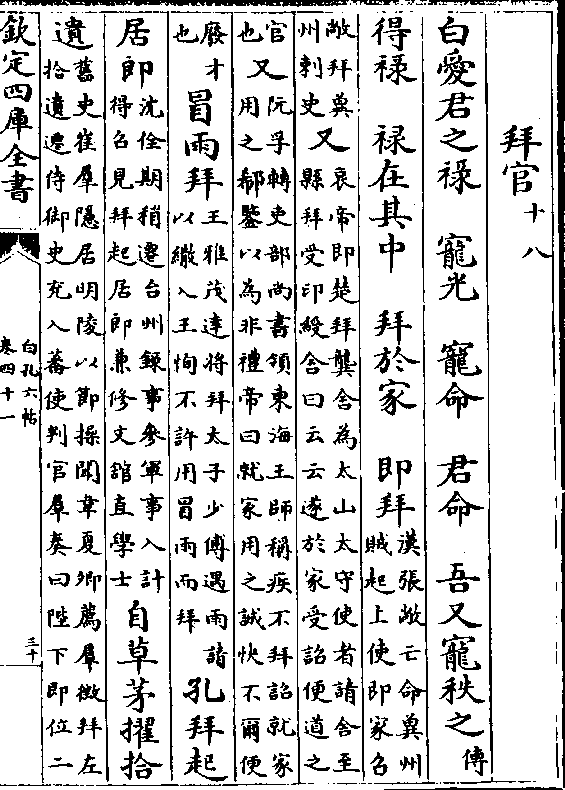 拜官十八
白愛君之祿　寵光　寵命　君命　吾又寵秩之傳
得祿　祿在其中　拜於家　即拜漢張敞亡命冀州
賊起上使即家召
敞拜冀
州刺史又哀帝即楚拜龔舍為太山太守使者請舍至
縣拜受印綬舍曰云云遂於家受詔便道之
官阮孚轉吏部尚書領東海王師稱疾不拜詔就家
也又用之郗鑒以為非禮帝曰就家用之誠快不爾便
廢才
也冒雨拜王雅茂達將拜太子少傅遇雨請
以繖入王恂不許用冒雨而拜孔拜起
居郎沈佺期稍遷台州錄事參軍事入計
得召見拜起居郎兼修文館直學士自草茅擢拾
遺舊史崔羣隱居明陵以節操聞韋夏卿薦羣徵拜左
拾遺遷侍御史充入蕃使判官羣奏曰陛下即位二
欽定四庫全書
白孔六帖
卷四十一
三十